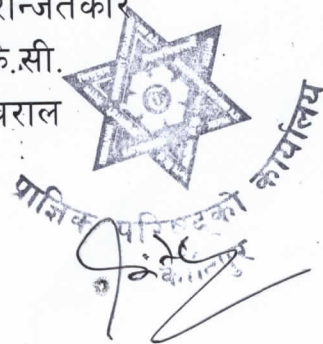 रन्जितकार
के.सी.
वराल
प्राज्ञिक परिषद्को कार्यालय